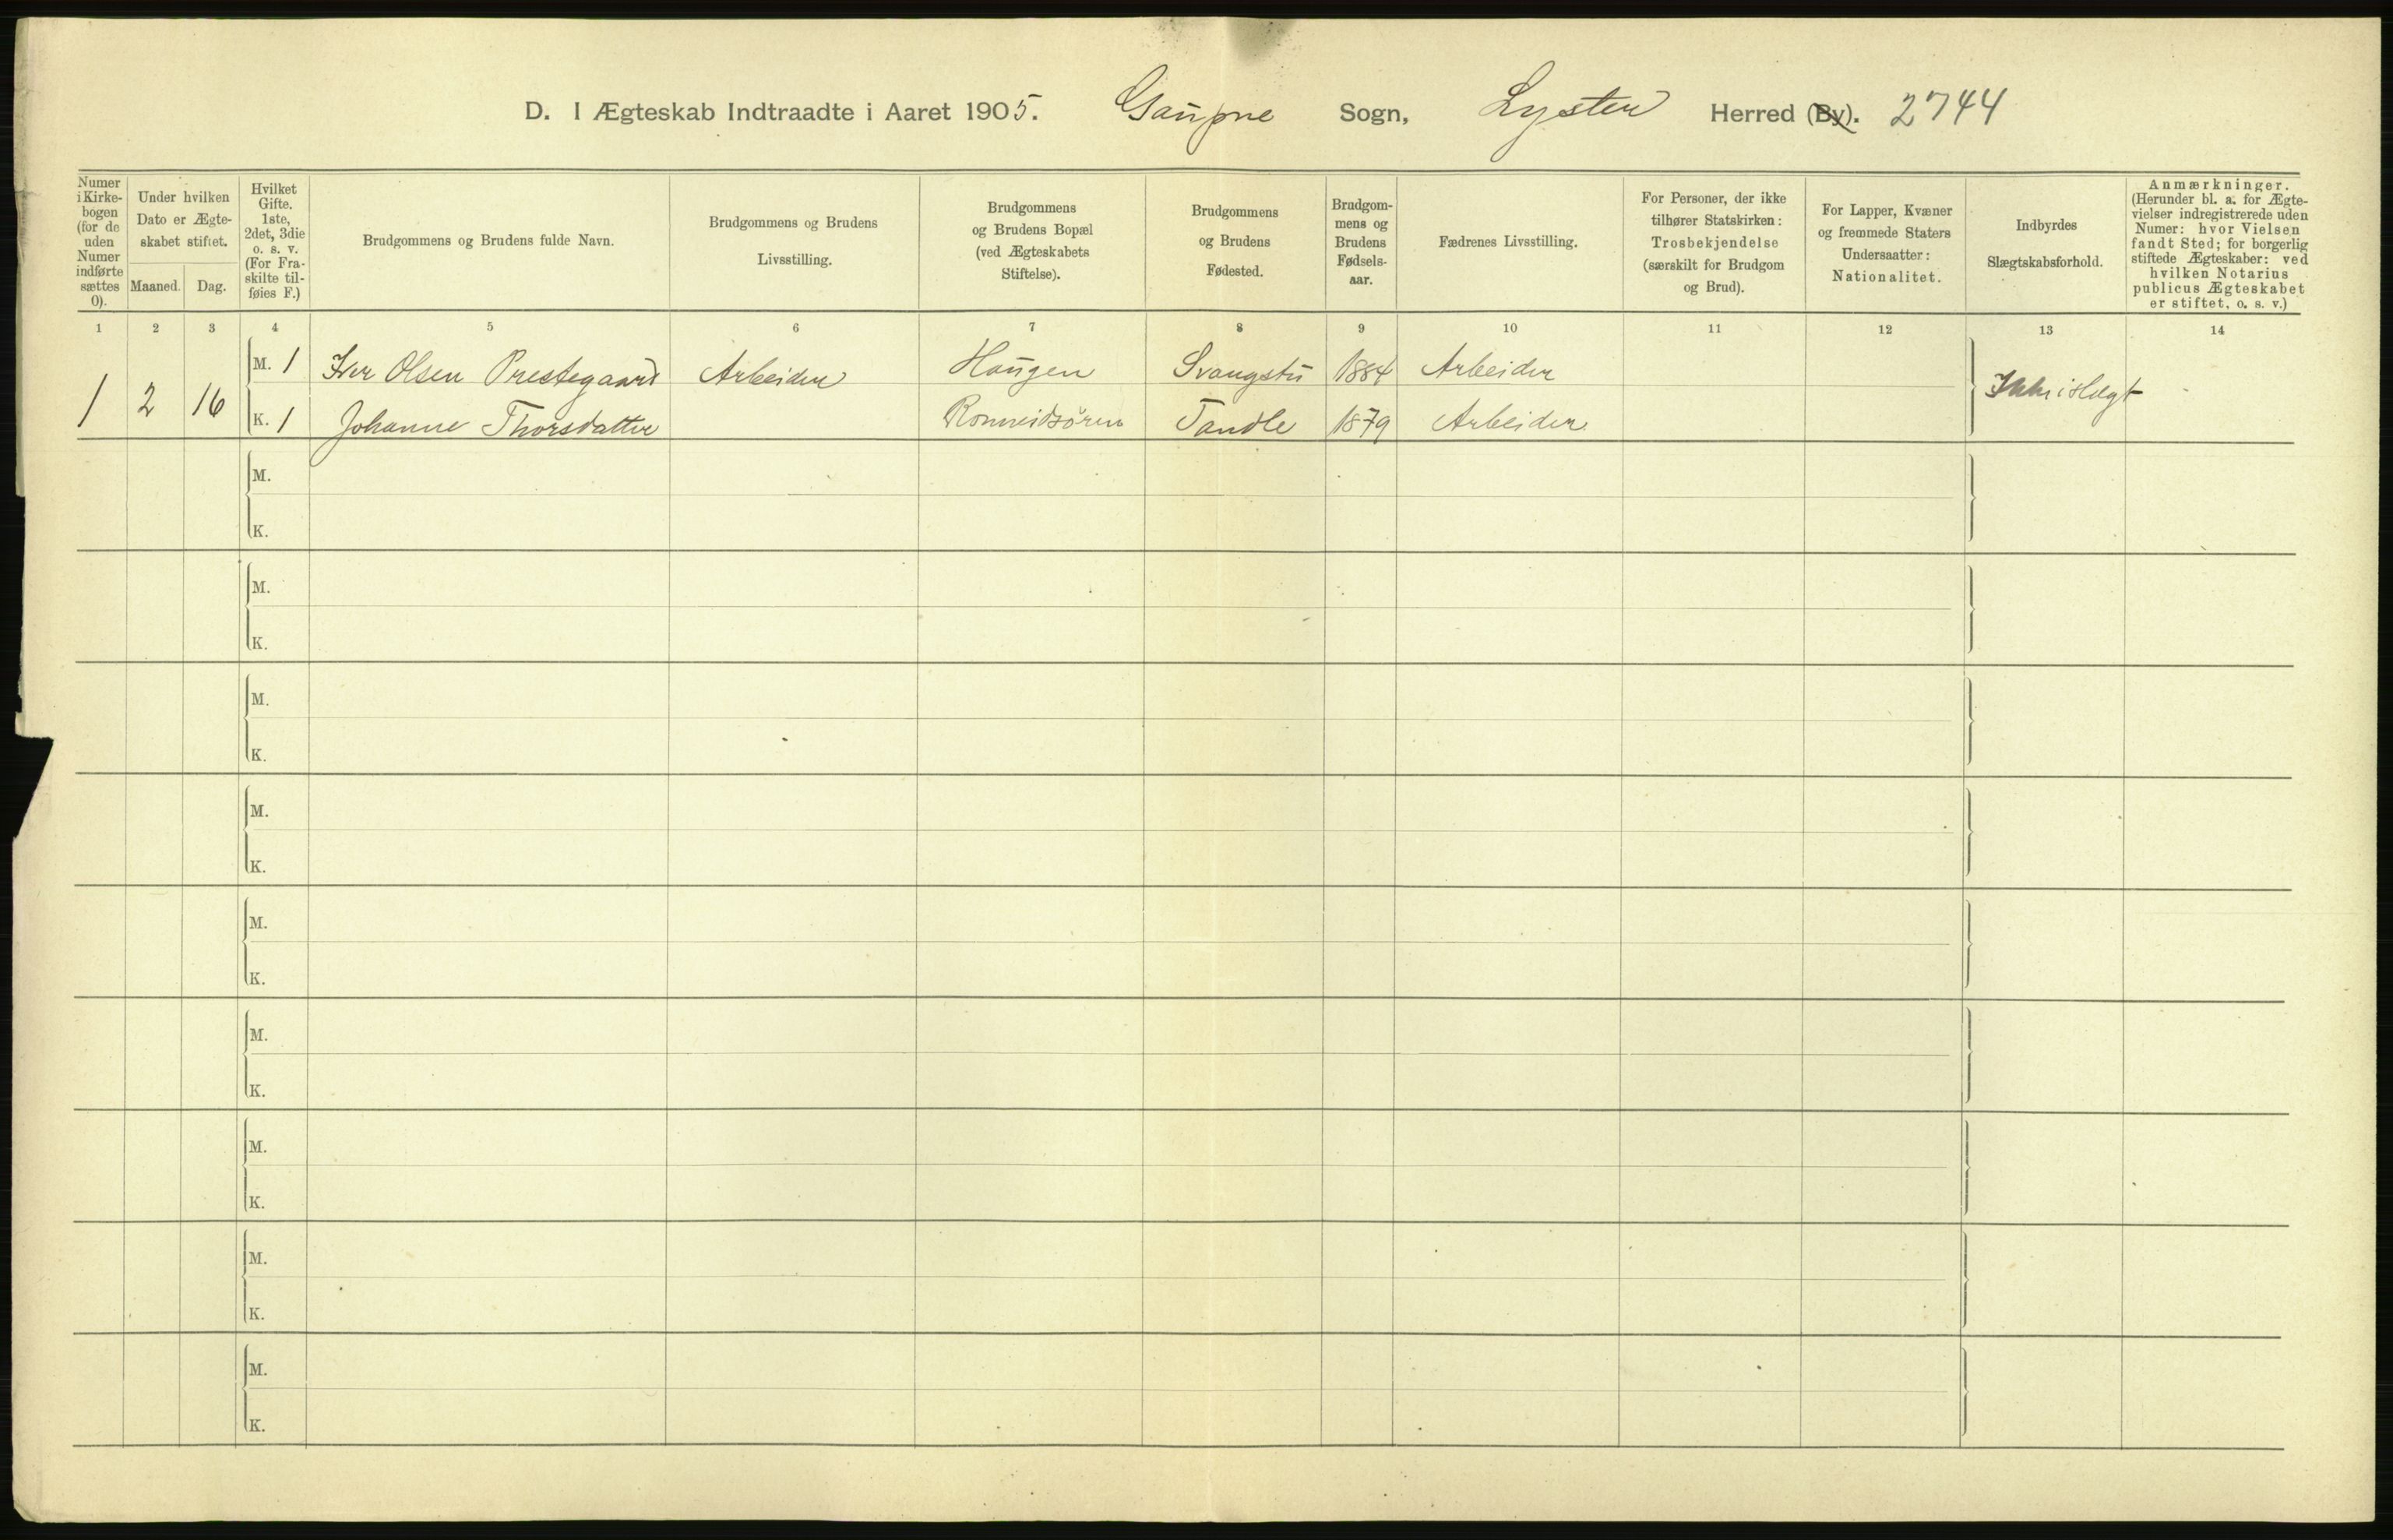 D. I Ægteskab Indtraadte i Aaret 1905. Gaupne Sogn, Lyster Herred (By). 2744
Numer i Kirkebogen (for de uden Numer indførte sættes 0).
Under hvilken Dato er Ægteskabet stiftet.
Maaned. Dag.
Hvilket Gifte. 1ste, 2det, 3die o. s. v. (For Fraskilte tilføies F.)
Brudgommens og Brudens fulde Navn.
Brudgommens og Brudens Livsstilling.
Brudgommens og Brudens Bopæl (ved Ægteskabets Stiftelse).
Brudgommens og Brudens Fødested.
Brudgommens og Brudens Fødselsaar.
Fædrenes Livsstilling.
For Personer, der ikke tilhører Statskirken: Trosbekjendelse (særskilt for Brudgom og Brud).
For Lapper, Kvæner og fremmede Staters Undersaatter: Nationalitet.
Indbyrdes Slægtskabsforhold.
Anmærkninger. (Herunder bl. a. for Ægtevielser indregistrerede uden Numer: hvor Vielsen fandt Sted; for borgerlig stiftede Ægteskaber: ved hvilken Notarius publicus Ægteskabet er stiftet, o. s. v.)
1 2 3 4 5 6 7 8 9 10 11 12 13 14
1 2 16 M. 1 Iver Olsen Prestegaard Arbeider Haugen Svangstu 1884 Arbeider Ikke i Slægt
K. 1 Johanne Thorsdatter Ronneidsören Tandle 1879 Arbeider
M.
K.
M.
K.
M.
K.
M.
K.
M.
K.
M.
K.
M.
K.
M.
K.
M.
K.